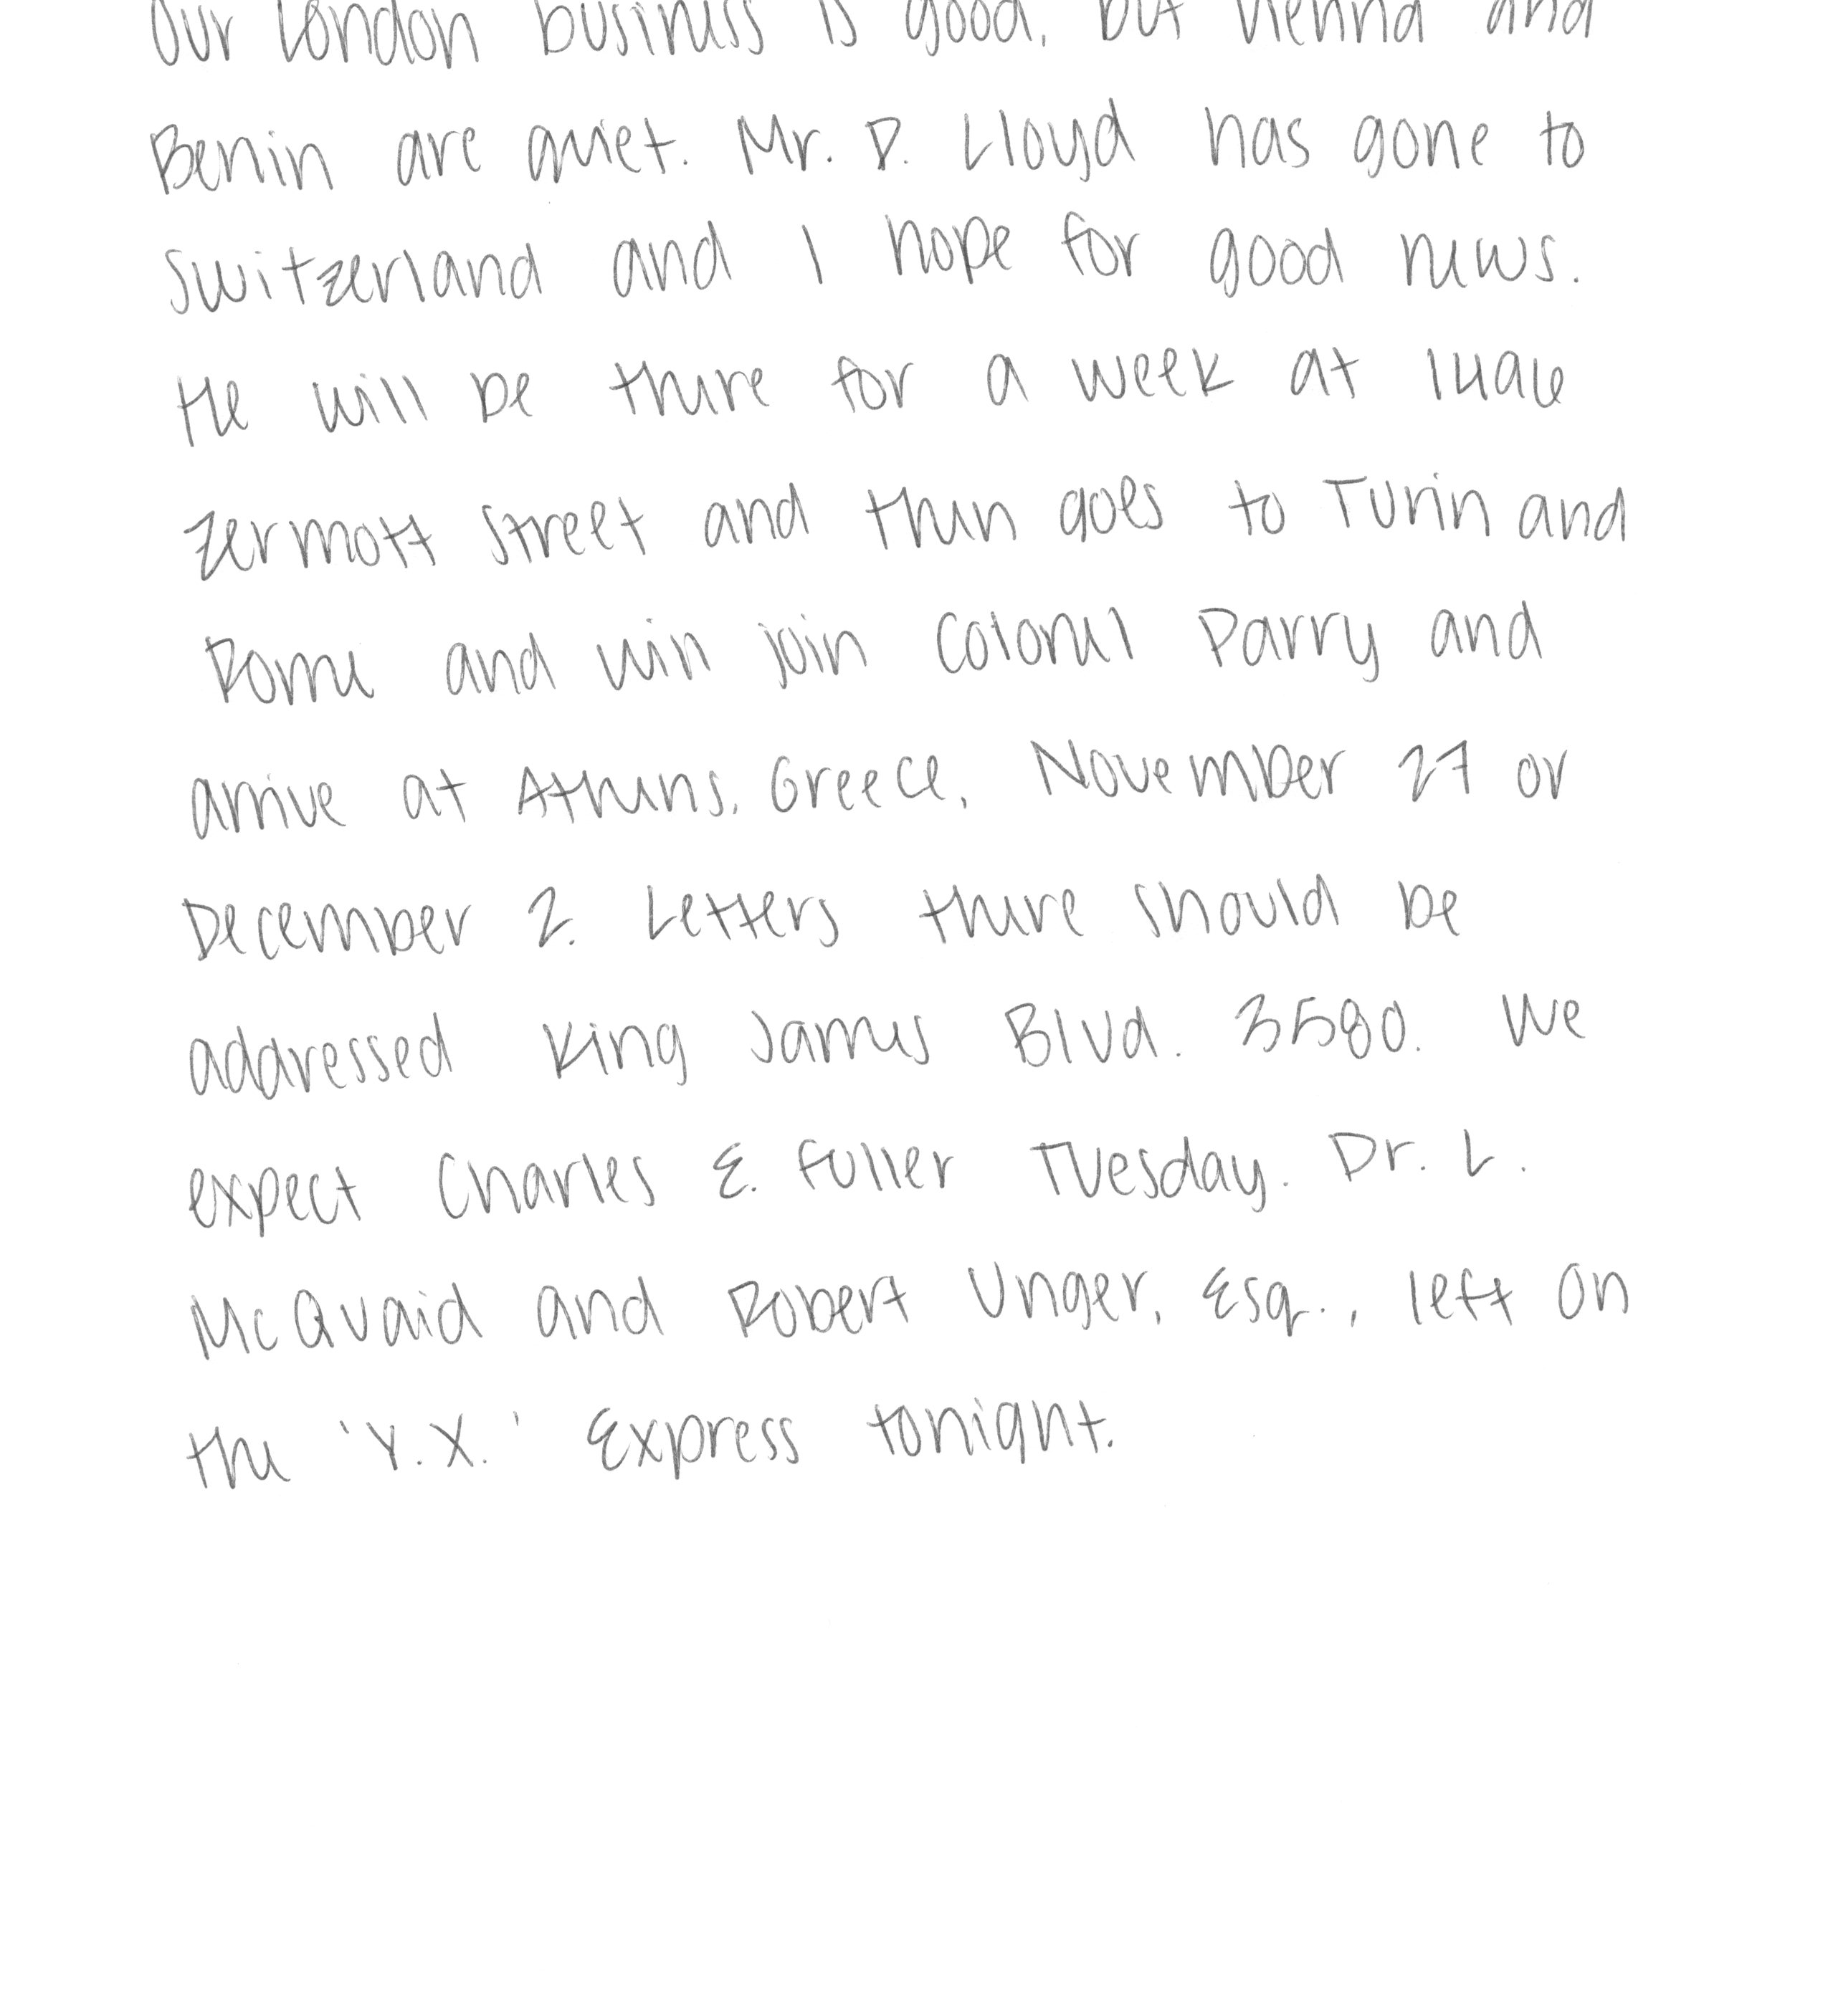 Our London business is good, but Vienna and
Benin are quiet. Mr. D. Lloyd has gone to
Switzerland and I hope for good news.
He will be there for a week at
Zermott street and then goes to Turin and
Rome and will join Colonel Parry and
arrive at Athens, Greece, November 27 or
December 2. Letters there should be
addressed King James Blvd. 3580. We
expect Charles E. Fuller Tuesday. Dr. L.
McQuaid and Robert Unger, Esq., left on
the 'Y.X.' Express tonight.